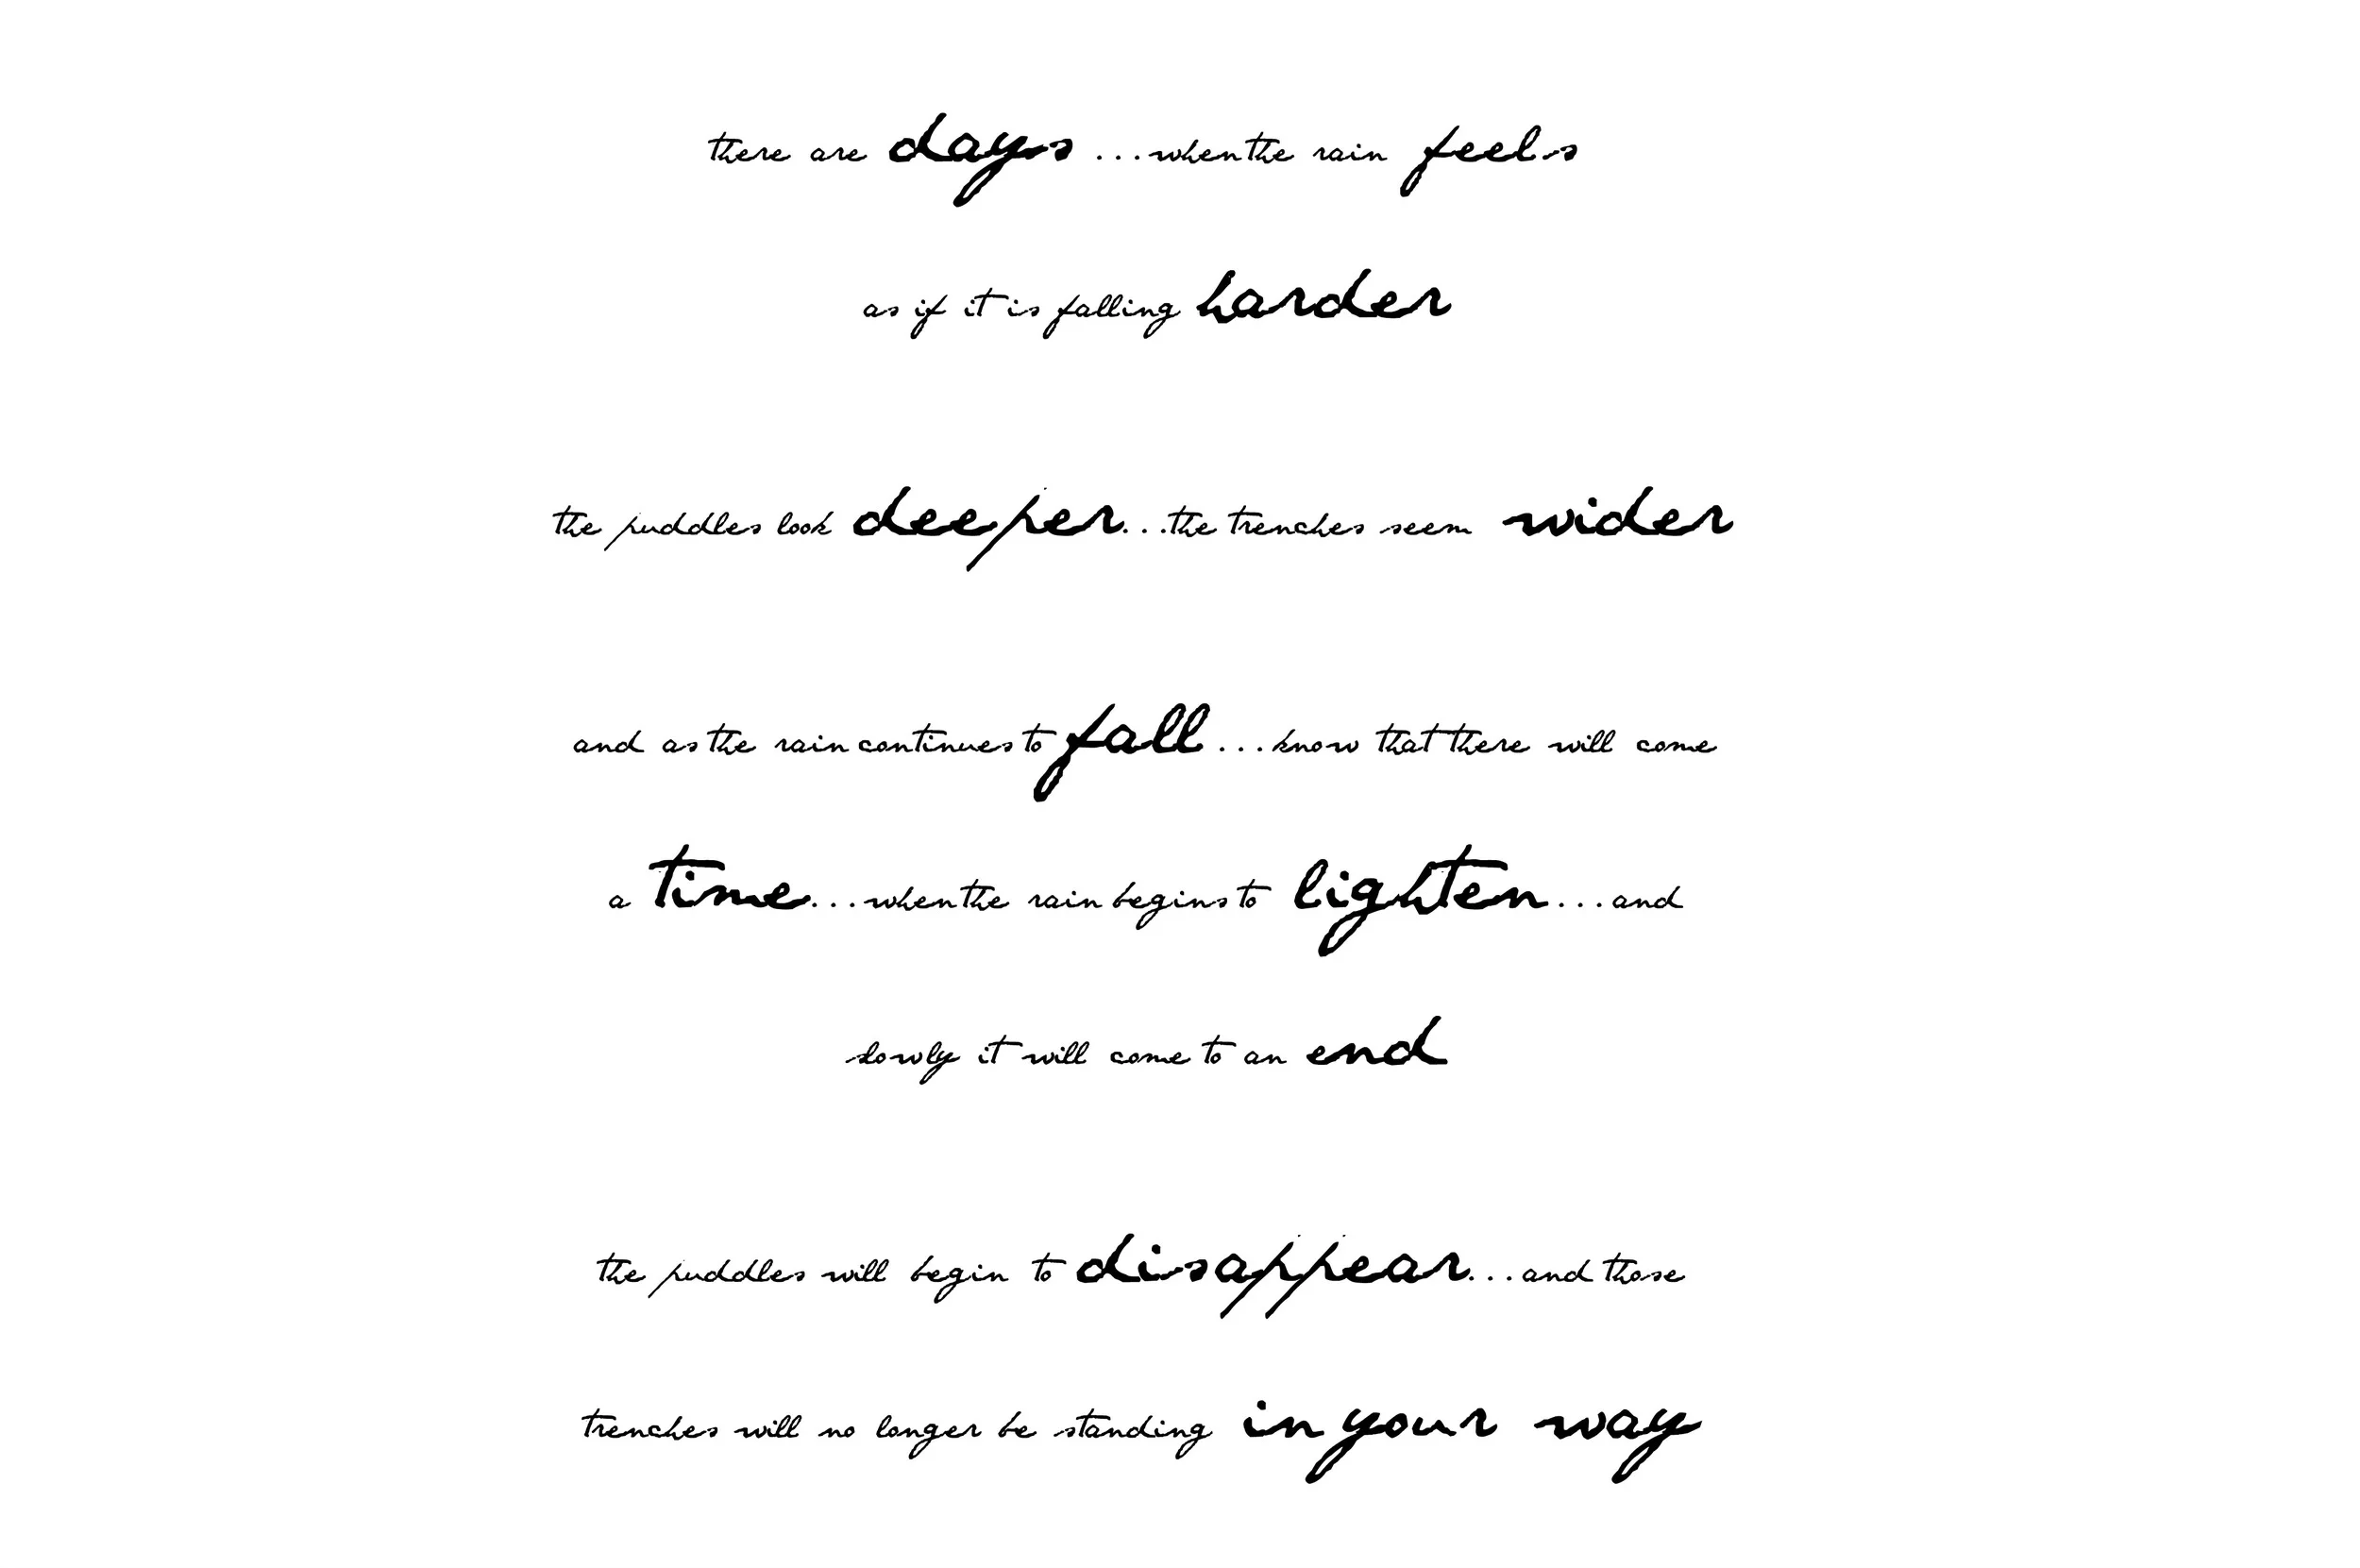 there are days ...when the rain feels
as if it is falling harder
the puddles look deeper...the trenches seem wider
and as the rain continues to fall ...know that there will come
a time...when the rain begins to lighten...and
slowly it will come to an end
the puddles will begin to disappear...and those
trenches will no longer be standing in your way